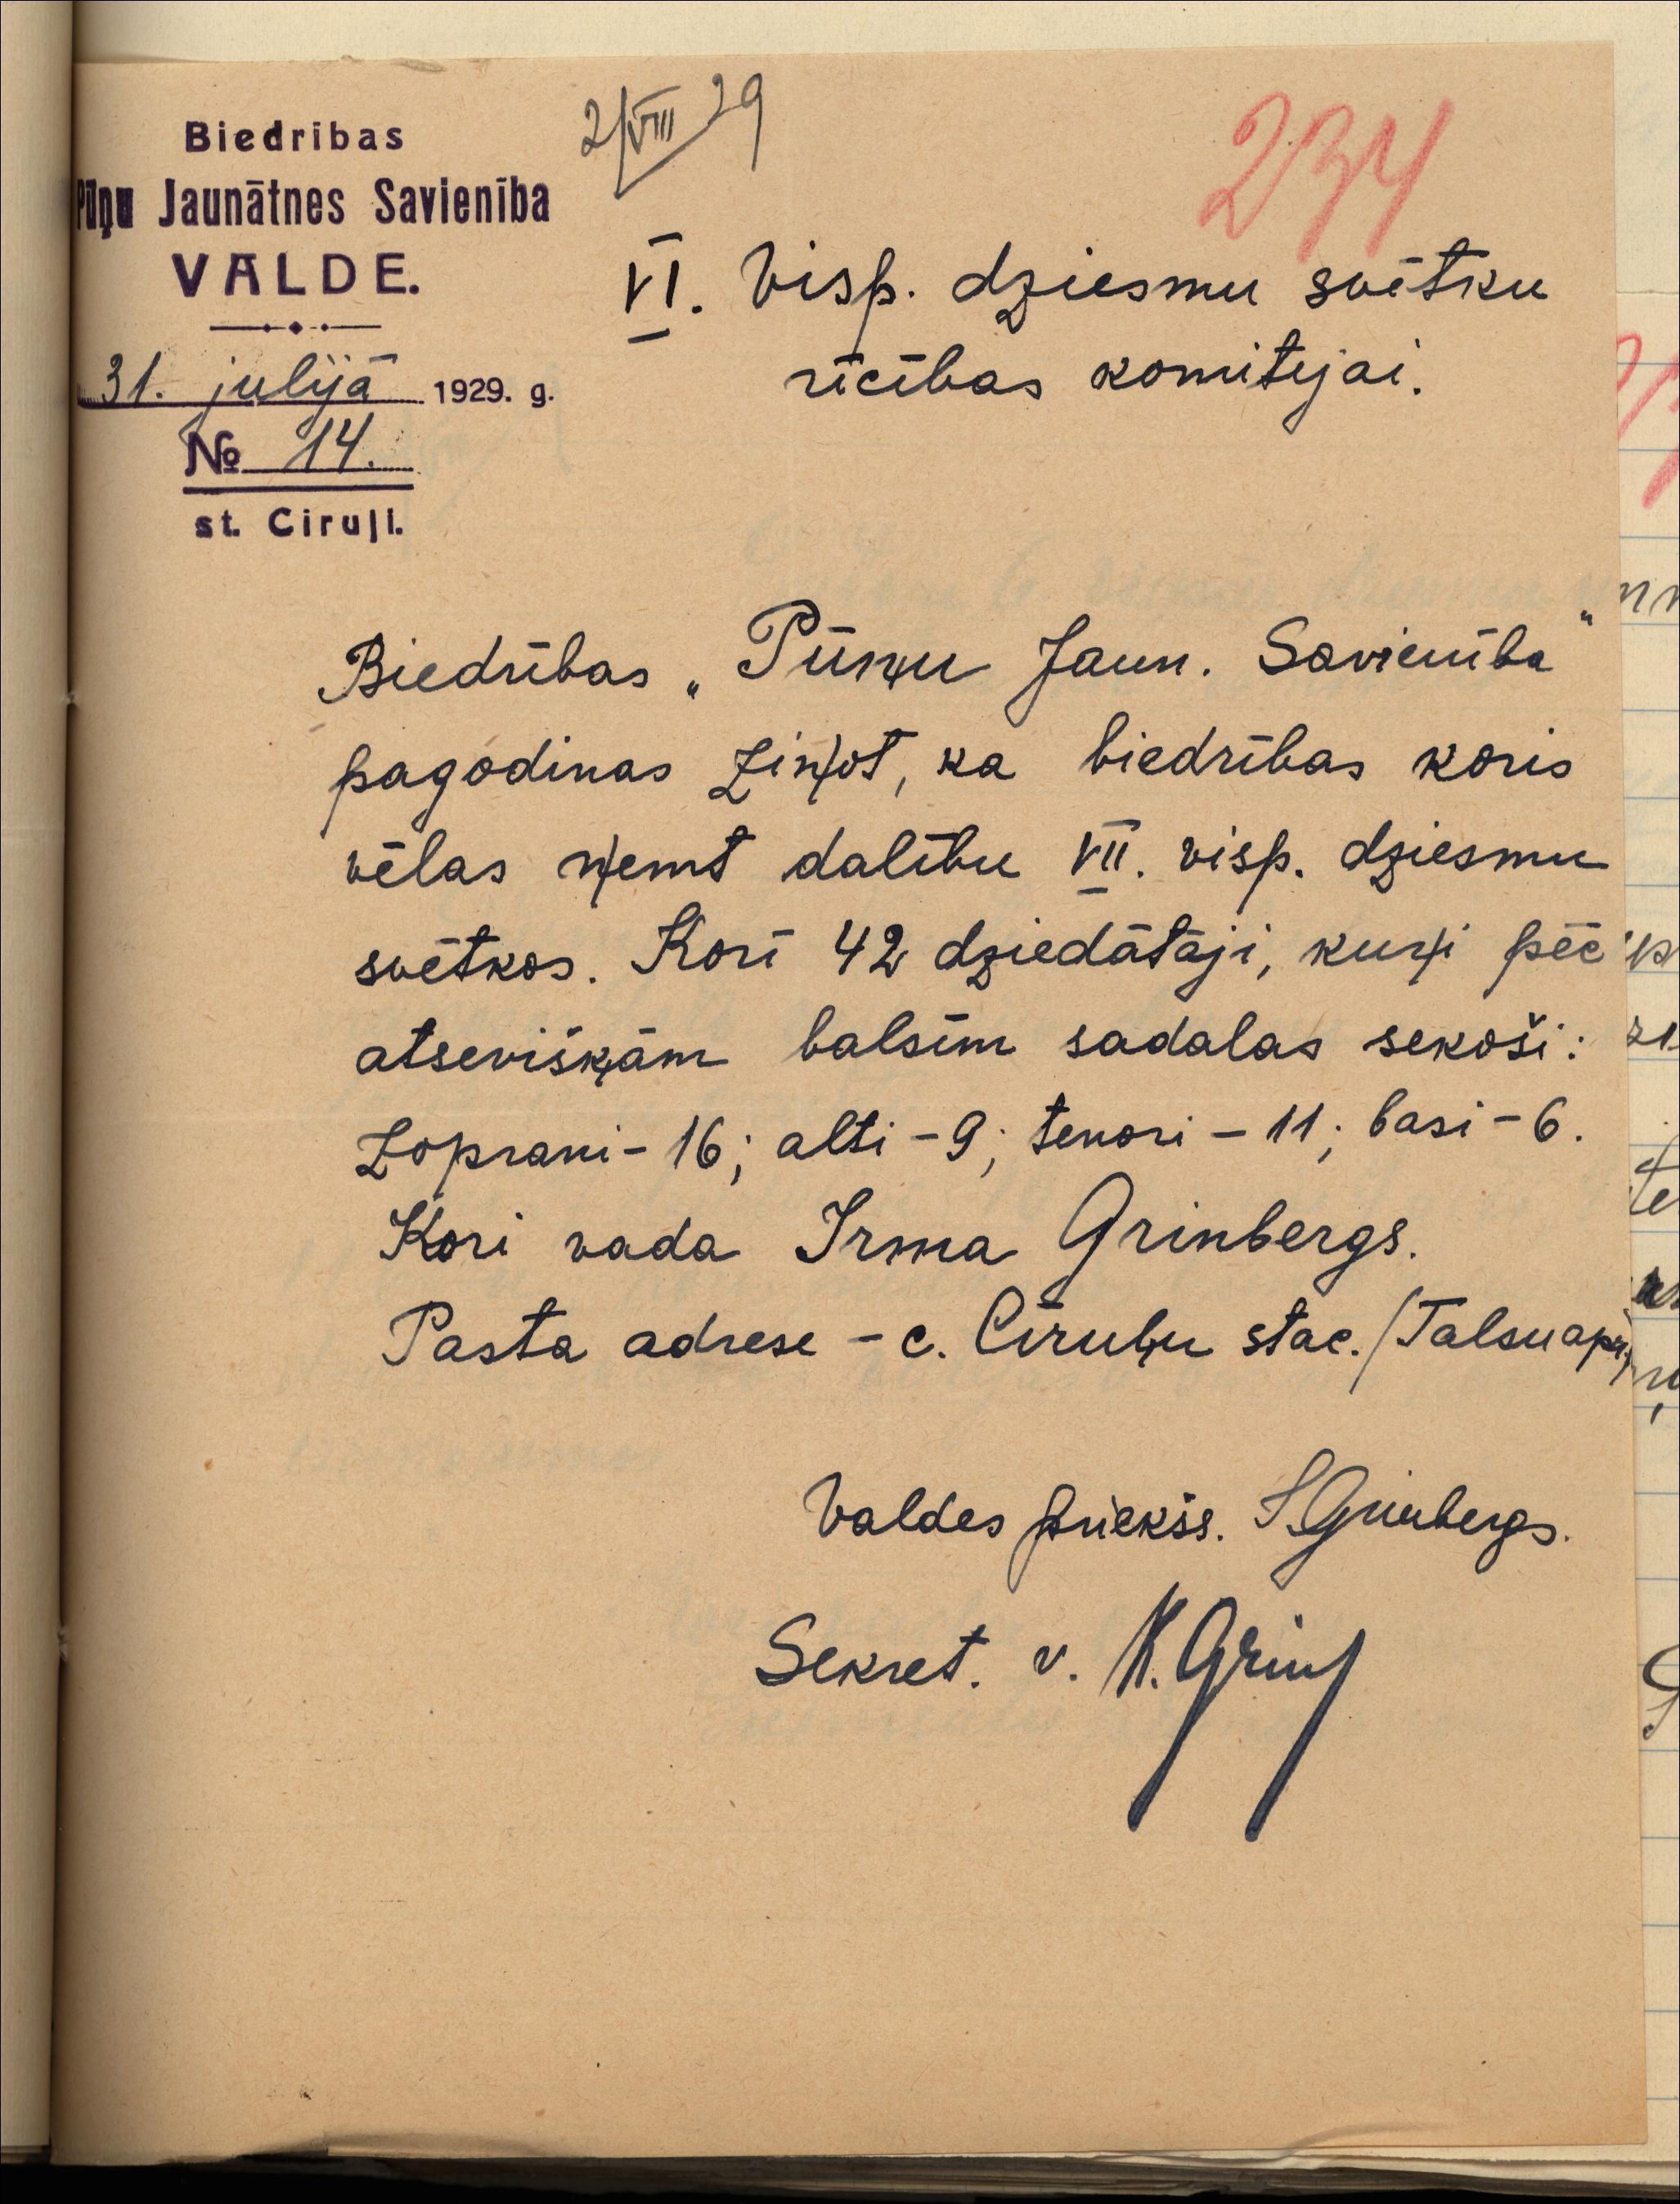 Biedrības
Pūņu Jaunātnes Savienība
VALDE.
31. julijā 1929. g.
№ 14.
st. Ciruļi.
2/VIII 29
234
VI. Visp. dziesmu svētku
rīcības komitejai.
Biedrības „Pūņu Jaun. Savienība"
pagodinas ziņot, ka biedrības koris
vēlas ņemt dalību VII. visp. dziesmu
svētkos. Korī 42 dziedātāji, kuŗi pēc
atsevišķām balsīm sadalas sekoši:
Zoprani - 16; alti - 9; tenori - 11; basi - 6.
Kori vada Irma Grinbergs.
Pasta adrese - c. Cīruļu stac. /Talsu apr./
Valdes priekšs. I. Grinbergs.
Sekret. v. K. Grin